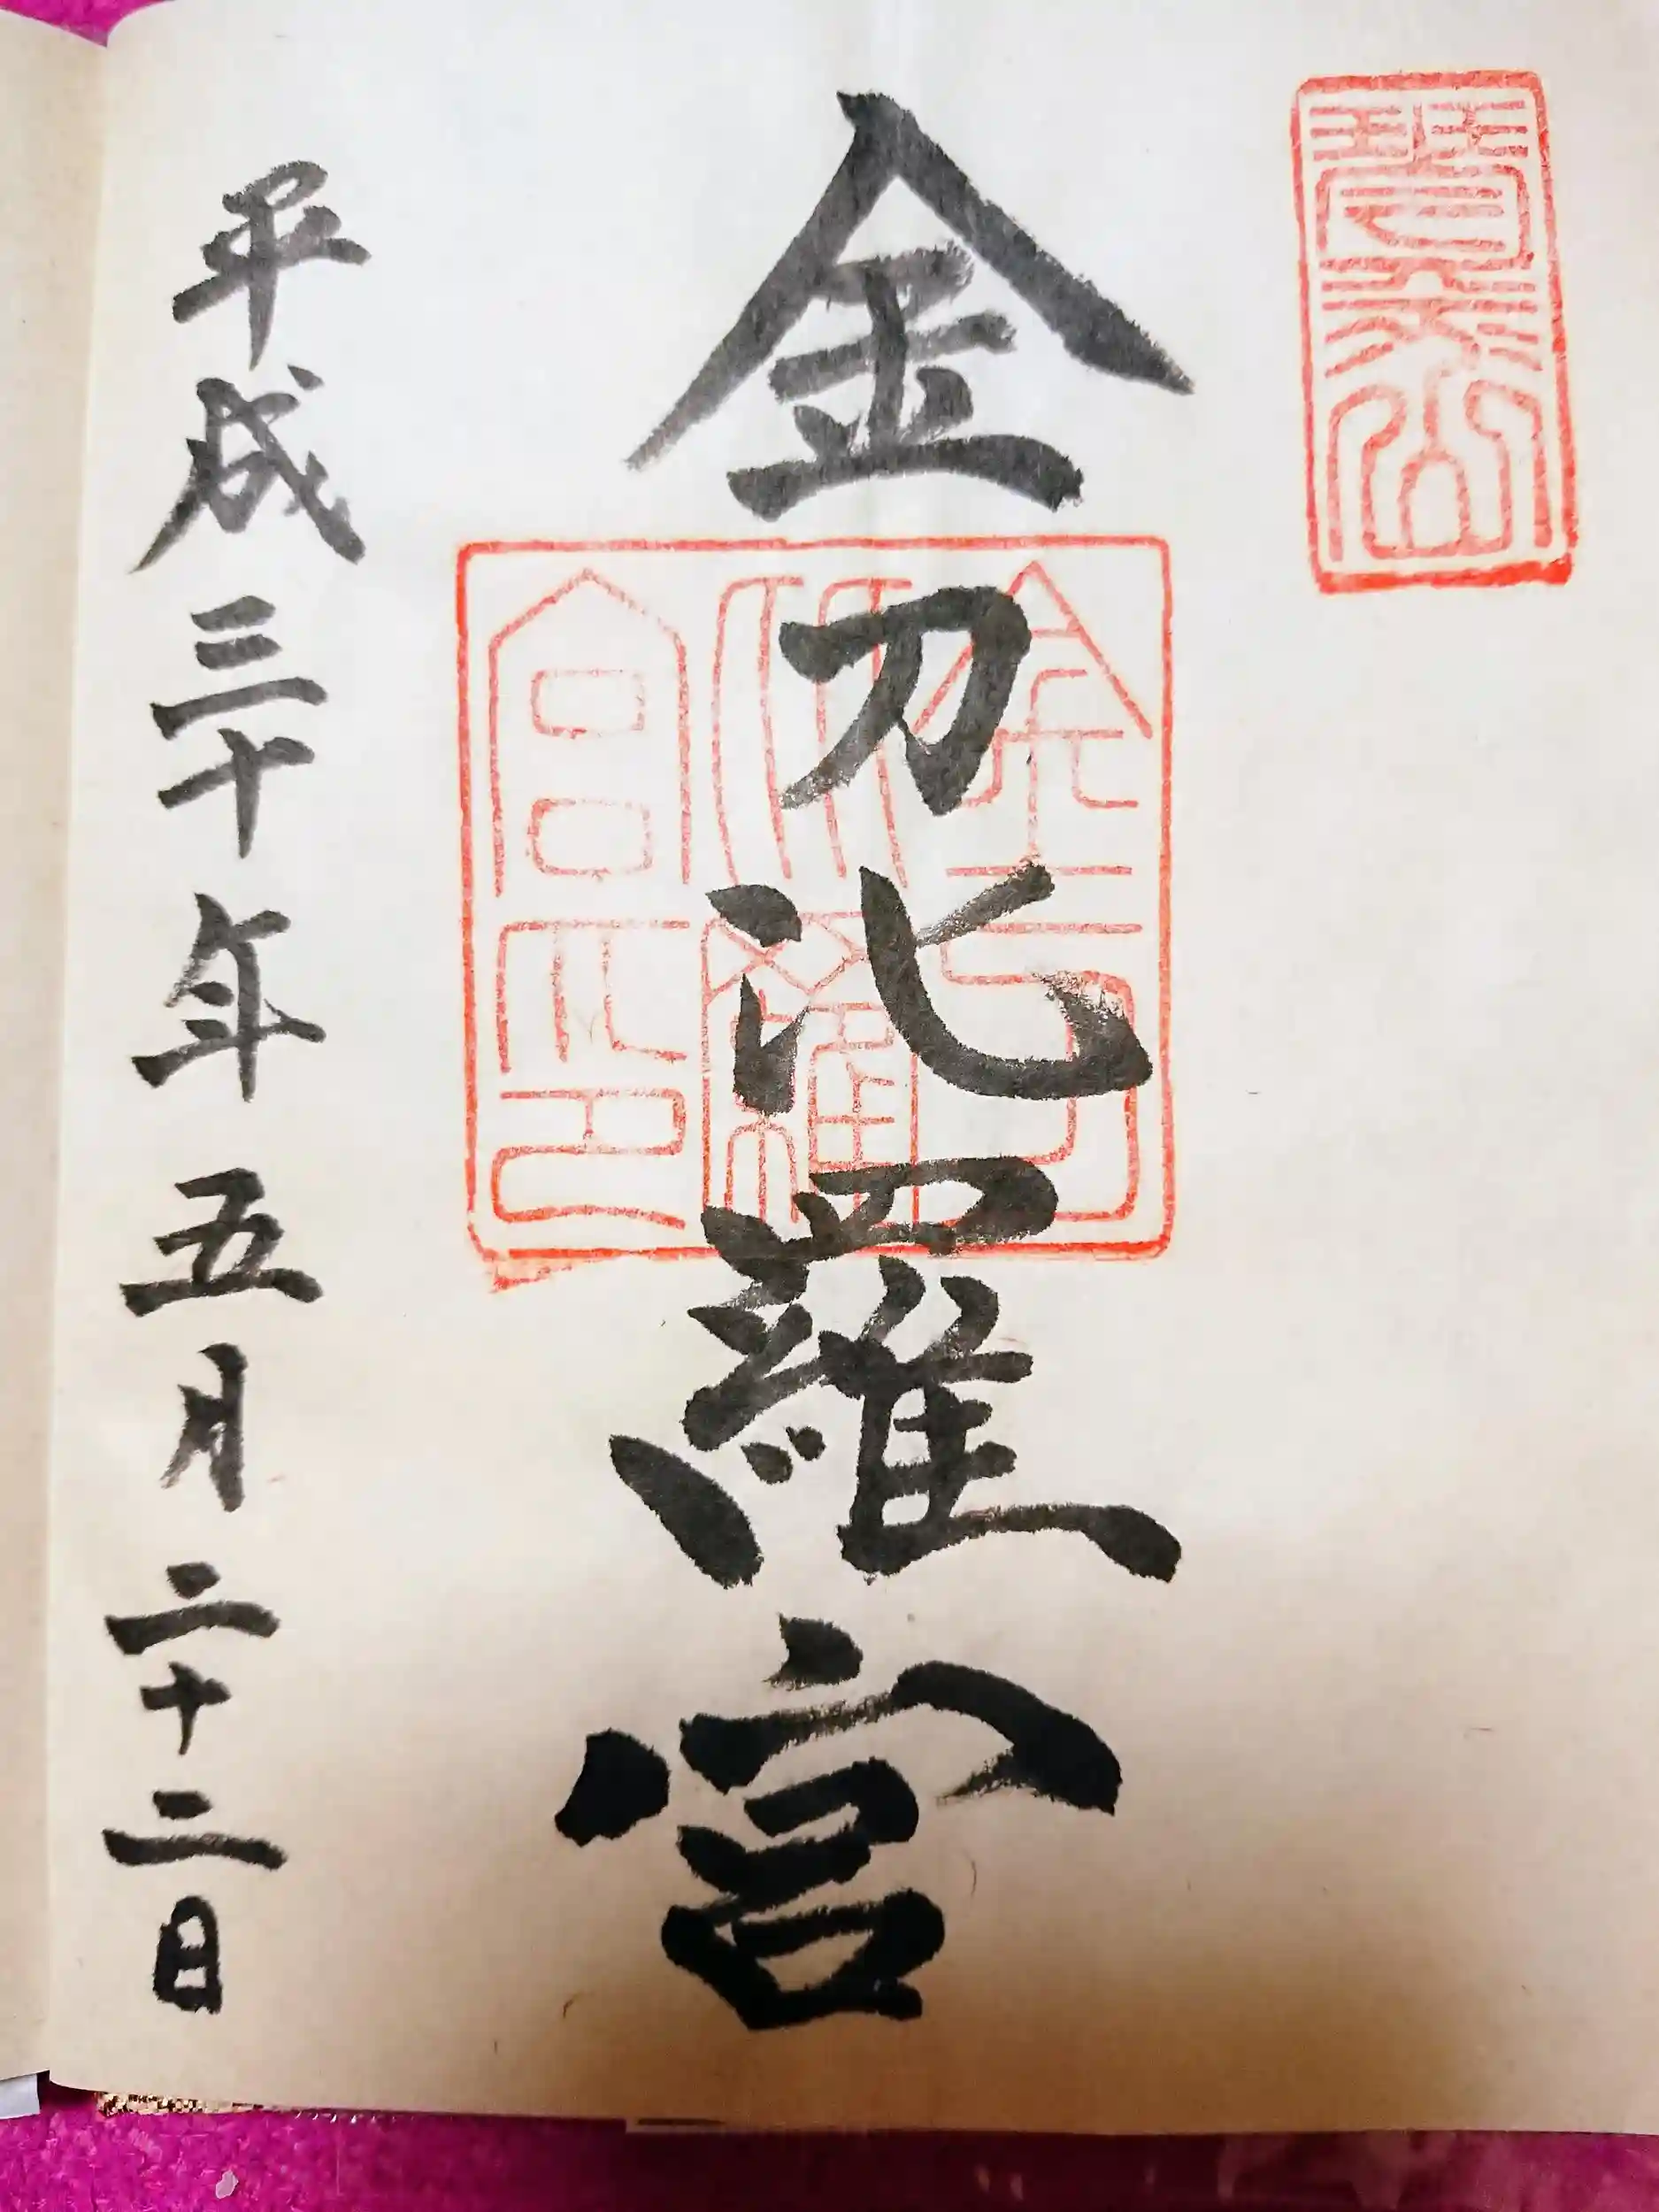 琴平山
金刀比羅宮
金刀
比羅
宮印
平成三十年五月二十二日